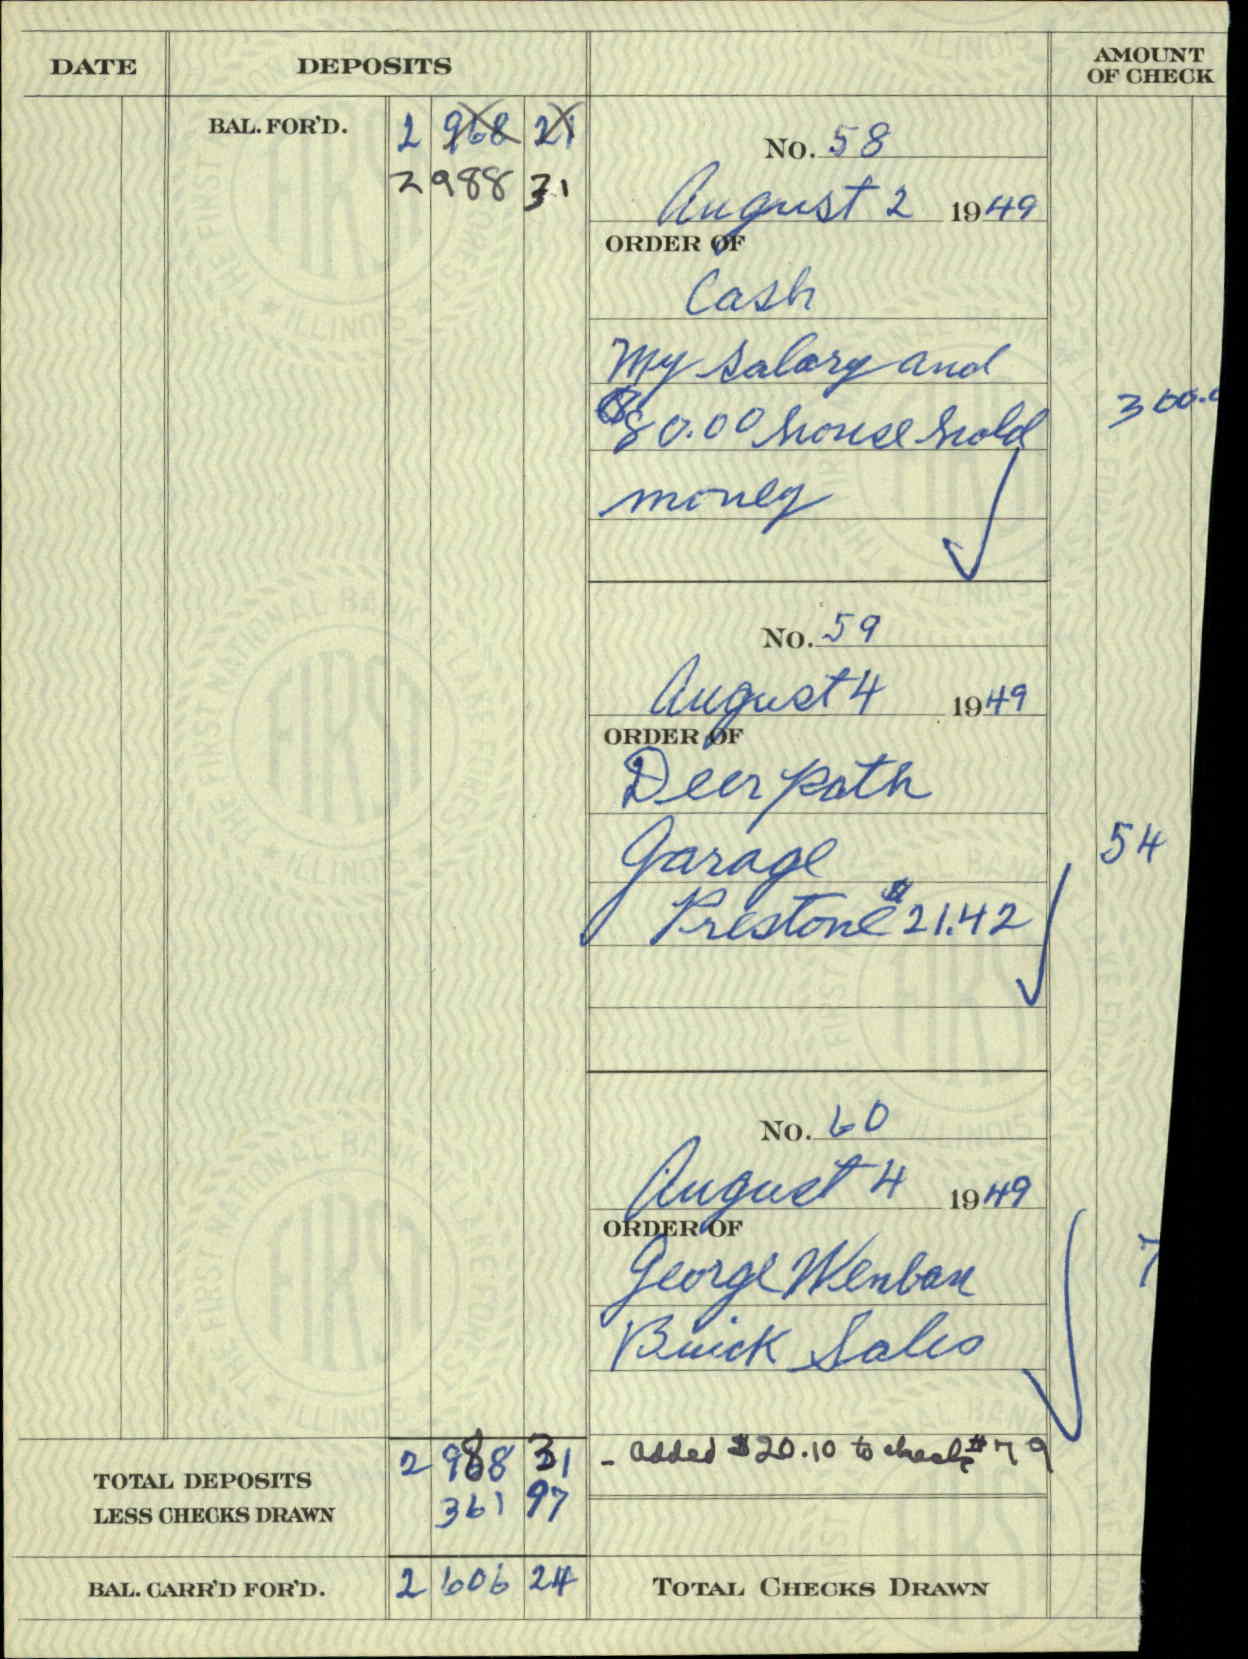 DATE DEPOSITS AMOUNT OF CHECK
BAL. FOR'D. 2 968 21
2988 31
No. 58
August 2 1949
ORDER OF
Cash
My salary and
$80.00 house hold
money
300.0
No. 59
August 4 1949
ORDER OF
Deerpath
Garage
54
Prestone $21.42
No. 60
August 4 1949
ORDER OF
George Wenban
7
Buick Sales
- added $20.10 to check #79
TOTAL DEPOSITS 2 988 31
LESS CHECKS DRAWN 361 97
BAL. CARR'D FOR'D. 2 606 24 TOTAL CHECKS DRAWN
FIRST NATIONAL BANK LAKE FOREST
ILLINOIS
FIRST